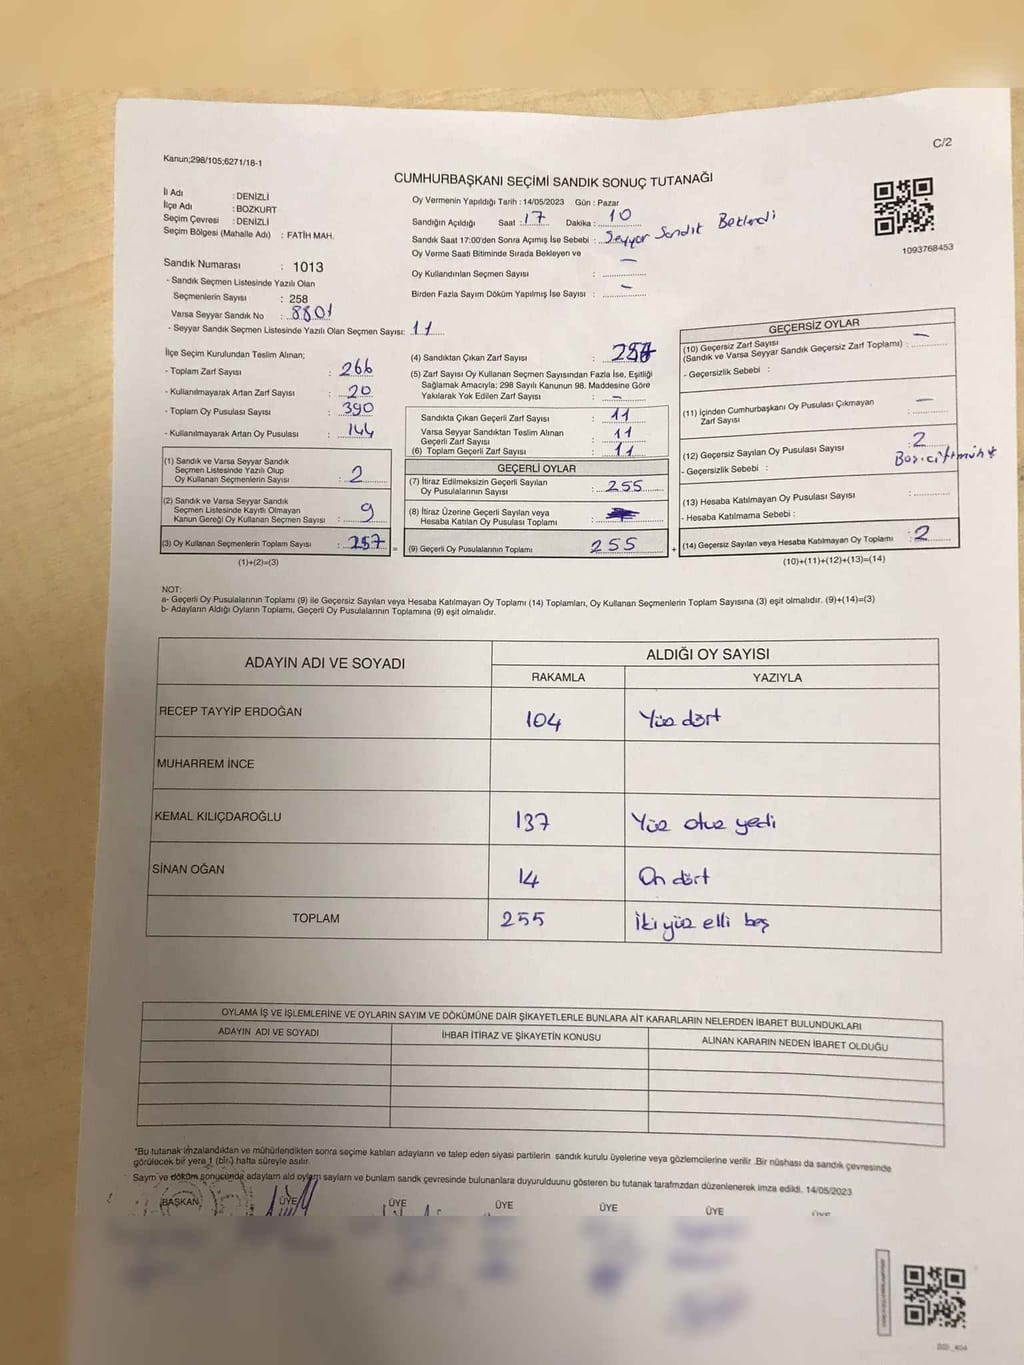 C/2
Kanun;298/105;6271/18-1
CUMHURBAŞKANI SEÇİMİ SANDIK SONUÇ TUTANAĞI
İl Adı : DENİZLİ
İlçe Adı : BOZKURT
Seçim Çevresi : DENİZLİ
Seçim Bölgesi (Mahalle Adı) : FATİH MAH.
Oy Vermenin Yapıldığı Tarih : 14/05/2023 Gün : Pazar
Sandığın Açıldığı Saat : 17 Dakika : 10
Sandık Saat 17:00'den Sonra Açımış İse Sebebi : Seyyar Sandık Beklendi
Oy Verme Saati Bitiminde Sırada Bekleyen ve
Oy Kullandırılan Seçmen Sayısı : —
Birden Fazla Sayım Döküm Yapılmış İse Sayısı : —
1093768453
Sandık Numarası : 1013
- Sandık Seçmen Listesinde Yazılı Olan
Seçmenlerin Sayısı : 258
Varsa Seyyar Sandık No : 8801
- Seyyar Sandık Seçmen Listesinde Yazılı Olan Seçmen Sayısı: 11
İlçe Seçim Kurulundan Teslim Alınan;
- Toplam Zarf Sayısı : 266
- Kullanılmayarak Artan Zarf Sayısı : 20
- Toplam Oy Pusulası Sayısı : 390
- Kullanılmayarak Artan Oy Pusulası : 144
(1) Sandık ve Varsa Seyyar Sandık
Seçmen Listesinde Yazılı Olup
Oy Kullanan Seçmenlerin Sayısı : 2
(2) Sandık ve Varsa Seyyar Sandık
Seçmen Listesinde Kayıtlı Olmayan
Kanun Gereği Oy Kullanan Seçmen Sayısı : 9
(3) Oy Kullanan Seçmenlerin Toplam Sayısı : 257 =
(1)+(2)=(3)
(4) Sandıktan Çıkan Zarf Sayısı :
(5) Zarf Sayısı Oy Kullanan Seçmen Sayısından Fazla İse, Eşitliği
Sağlamak Amacıyla; 298 Sayılı Kanunun 98. Maddesine Göre
Yakılarak Yok Edilen Zarf Sayısı : —
Sandıkta Çıkan Geçerli Zarf Sayısı : 11
Varsa Seyyar Sandıktan Teslim Alınan
Geçerli Zarf Sayısı : 11
(6) Toplam Geçerli Zarf Sayısı : 11
GEÇERLİ OYLAR
(7) İtiraz Edilmeksizin Geçerli Sayılan
Oy Pusulalarının Sayısı : 255
(8) İtiraz Üzerine Geçerli Sayılan veya
Hesaba Katılan Oy Pusulası Toplamı :
(9) Geçerli Oy Pusulalarının Toplamı 255 +
GEÇERSİZ OYLAR
(10) Geçersiz Zarf Sayısı
(Sandık ve Varsa Seyyar Sandık Geçersiz Zarf Toplamı) : —
- Geçersizlik Sebebi :
(11) İçinden Cumhurbaşkanı Oy Pusulası Çıkmayan
Zarf Sayısı : —
(12) Geçersiz Sayılan Oy Pusulası Sayısı : 2
- Geçersizlik Sebebi :
(13) Hesaba Katılmayan Oy Pusulası Sayısı :
- Hesaba Katılmama Sebebi :
(14) Geçersiz Sayılan veya Hesaba Katılmayan Oy Toplamı : 2
(10)+(11)+(12)+(13)=(14)
NOT:
a- Geçerli Oy Pusulalarının Toplamı (9) ile Geçersiz Sayılan veya Hesaba Katılmayan Oy Toplamı (14) Toplamları, Oy Kullanan Seçmenlerin Toplam Sayısına (3) eşit olmalıdır. (9)+(14)=(3)
b- Adayların Aldığı Oyların Toplamı, Geçerli Oy Pusulalarının Toplamına (9) eşit olmalıdır.
ADAYIN ADI VE SOYADI
ALDIĞI OY SAYISI
RAKAMLA YAZIYLA
RECEP TAYYİP ERDOĞAN 104 Yüz dört
MUHARREM İNCE
KEMAL KILIÇDAROĞLU 137 Yüz otuz yedi
SİNAN OĞAN 14 On dört
TOPLAM 255 İki yüz elli beş
OYLAMA İŞ VE İŞLEMLERİNE VE OYLARIN SAYIM VE DÖKÜMÜNE DAİR ŞİKAYETLERLE BUNLARA AİT KARARLARIN NELERDEN İBARET BULUNDUKLARI
ADAYIN ADI VE SOYADI İHBAR İTİRAZ VE ŞİKAYETİN KONUSU ALINAN KARARIN NEDEN İBARET OLDUĞU
*Bu tutanak imzalandıktan ve mühürlendikten sonra seçime katılan adayların ve talep eden siyasi partilerin sandık kurulu üyelerine veya gözlemcilerine verilir .Bir nüshası da sandık çevresinde
görülecek bir yere 1 (bir) hafta süreyle asılır.
Sayım ve döküm sonucunda adayların ald oyların sayıları ve bunların sandık çevresinde bulunanlara duyurulduunu gösteren bu tutanak tarafımzdan düzenlenerek imza edildi. 14/05/2023
BAŞKAN ÜYE ÜYE ÜYE ÜYE ÜYE